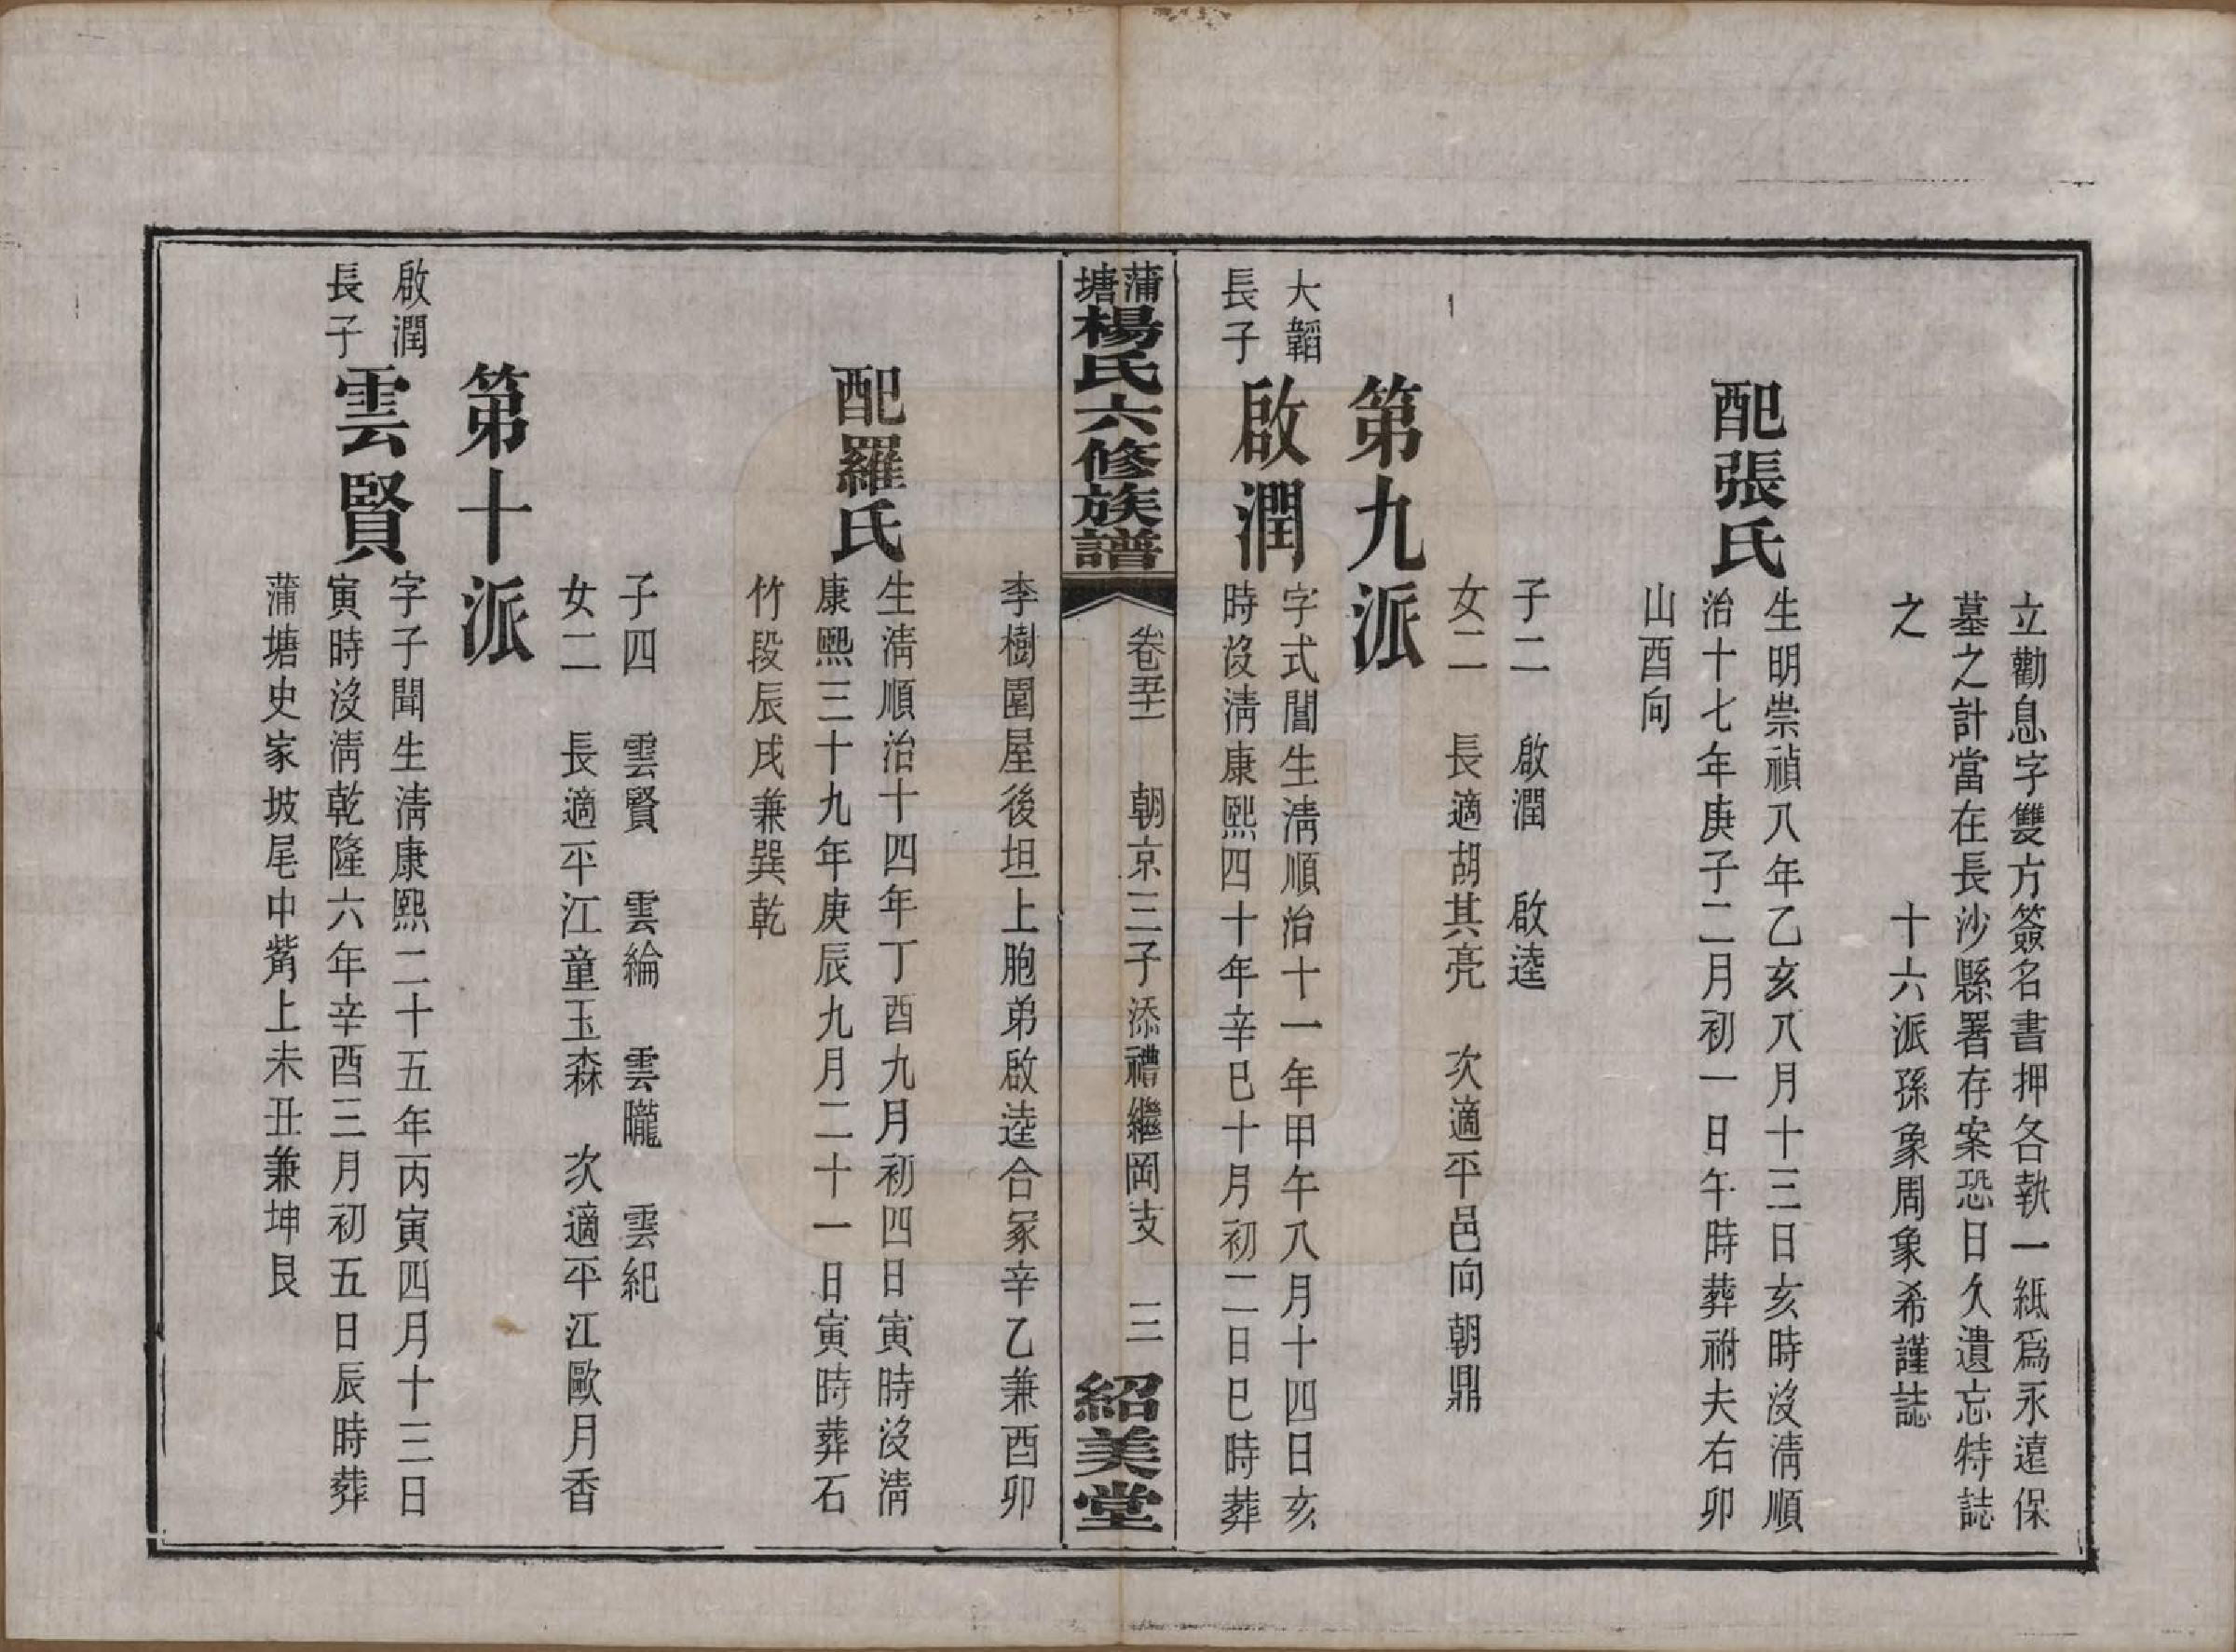 立勸息字雙方簽名書押各執一紙爲永遠保
墓之計當在長沙縣署存案恐日久遺忘特誌
之　十六派孫象周象希謹誌
配張氏
生明崇禎八年乙亥八月十三日亥時沒淸順
治十七年庚子二月初一日午時葬祔夫右卯
山酉向
子二　啟潤　啟逵
女二　長適胡其亮　次適平邑向朝鼎
第九派
大韜
長子
啟潤
字式閶生淸順治十一年甲午八月十四日亥
時沒淸康熙四十年辛巳十月初二日巳時葬
蒲塘楊氏六修族譜
卷五十二　朝京三子添禮繼岡支　三
紹美堂
李樹園屋後坦上胞弟啟逵合冢辛乙兼酉卯
配羅氏
生淸順治十四年丁酉九月初四日寅時沒淸
康熙三十九年庚辰九月二十一日寅時葬石
竹段辰戌兼巽乾
子四　雲賢　雲綸　雲曨　雲紀
女二　長適平江童玉森　次適平江歐月香
第十派
啟潤
長子
雲賢
字子聞生淸康熙二十五年丙寅四月十三日
寅時沒淸乾隆六年辛酉三月初五日辰時葬
蒲塘史家坡尾中觜上未丑兼坤艮